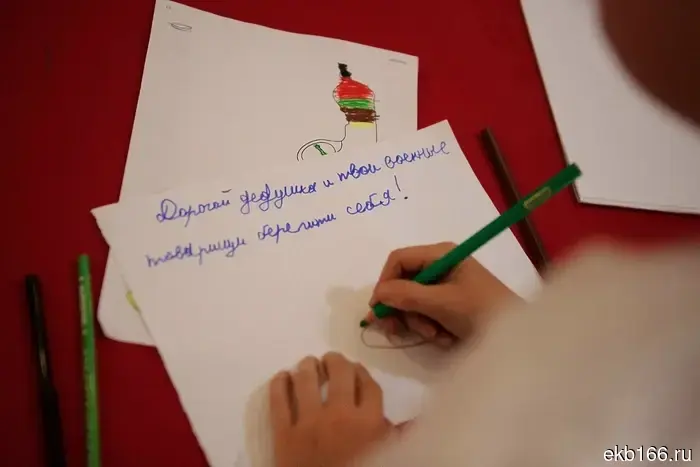 Дорогой дедушка и твои военные
товарищи берегити себя!
ekb166.ru